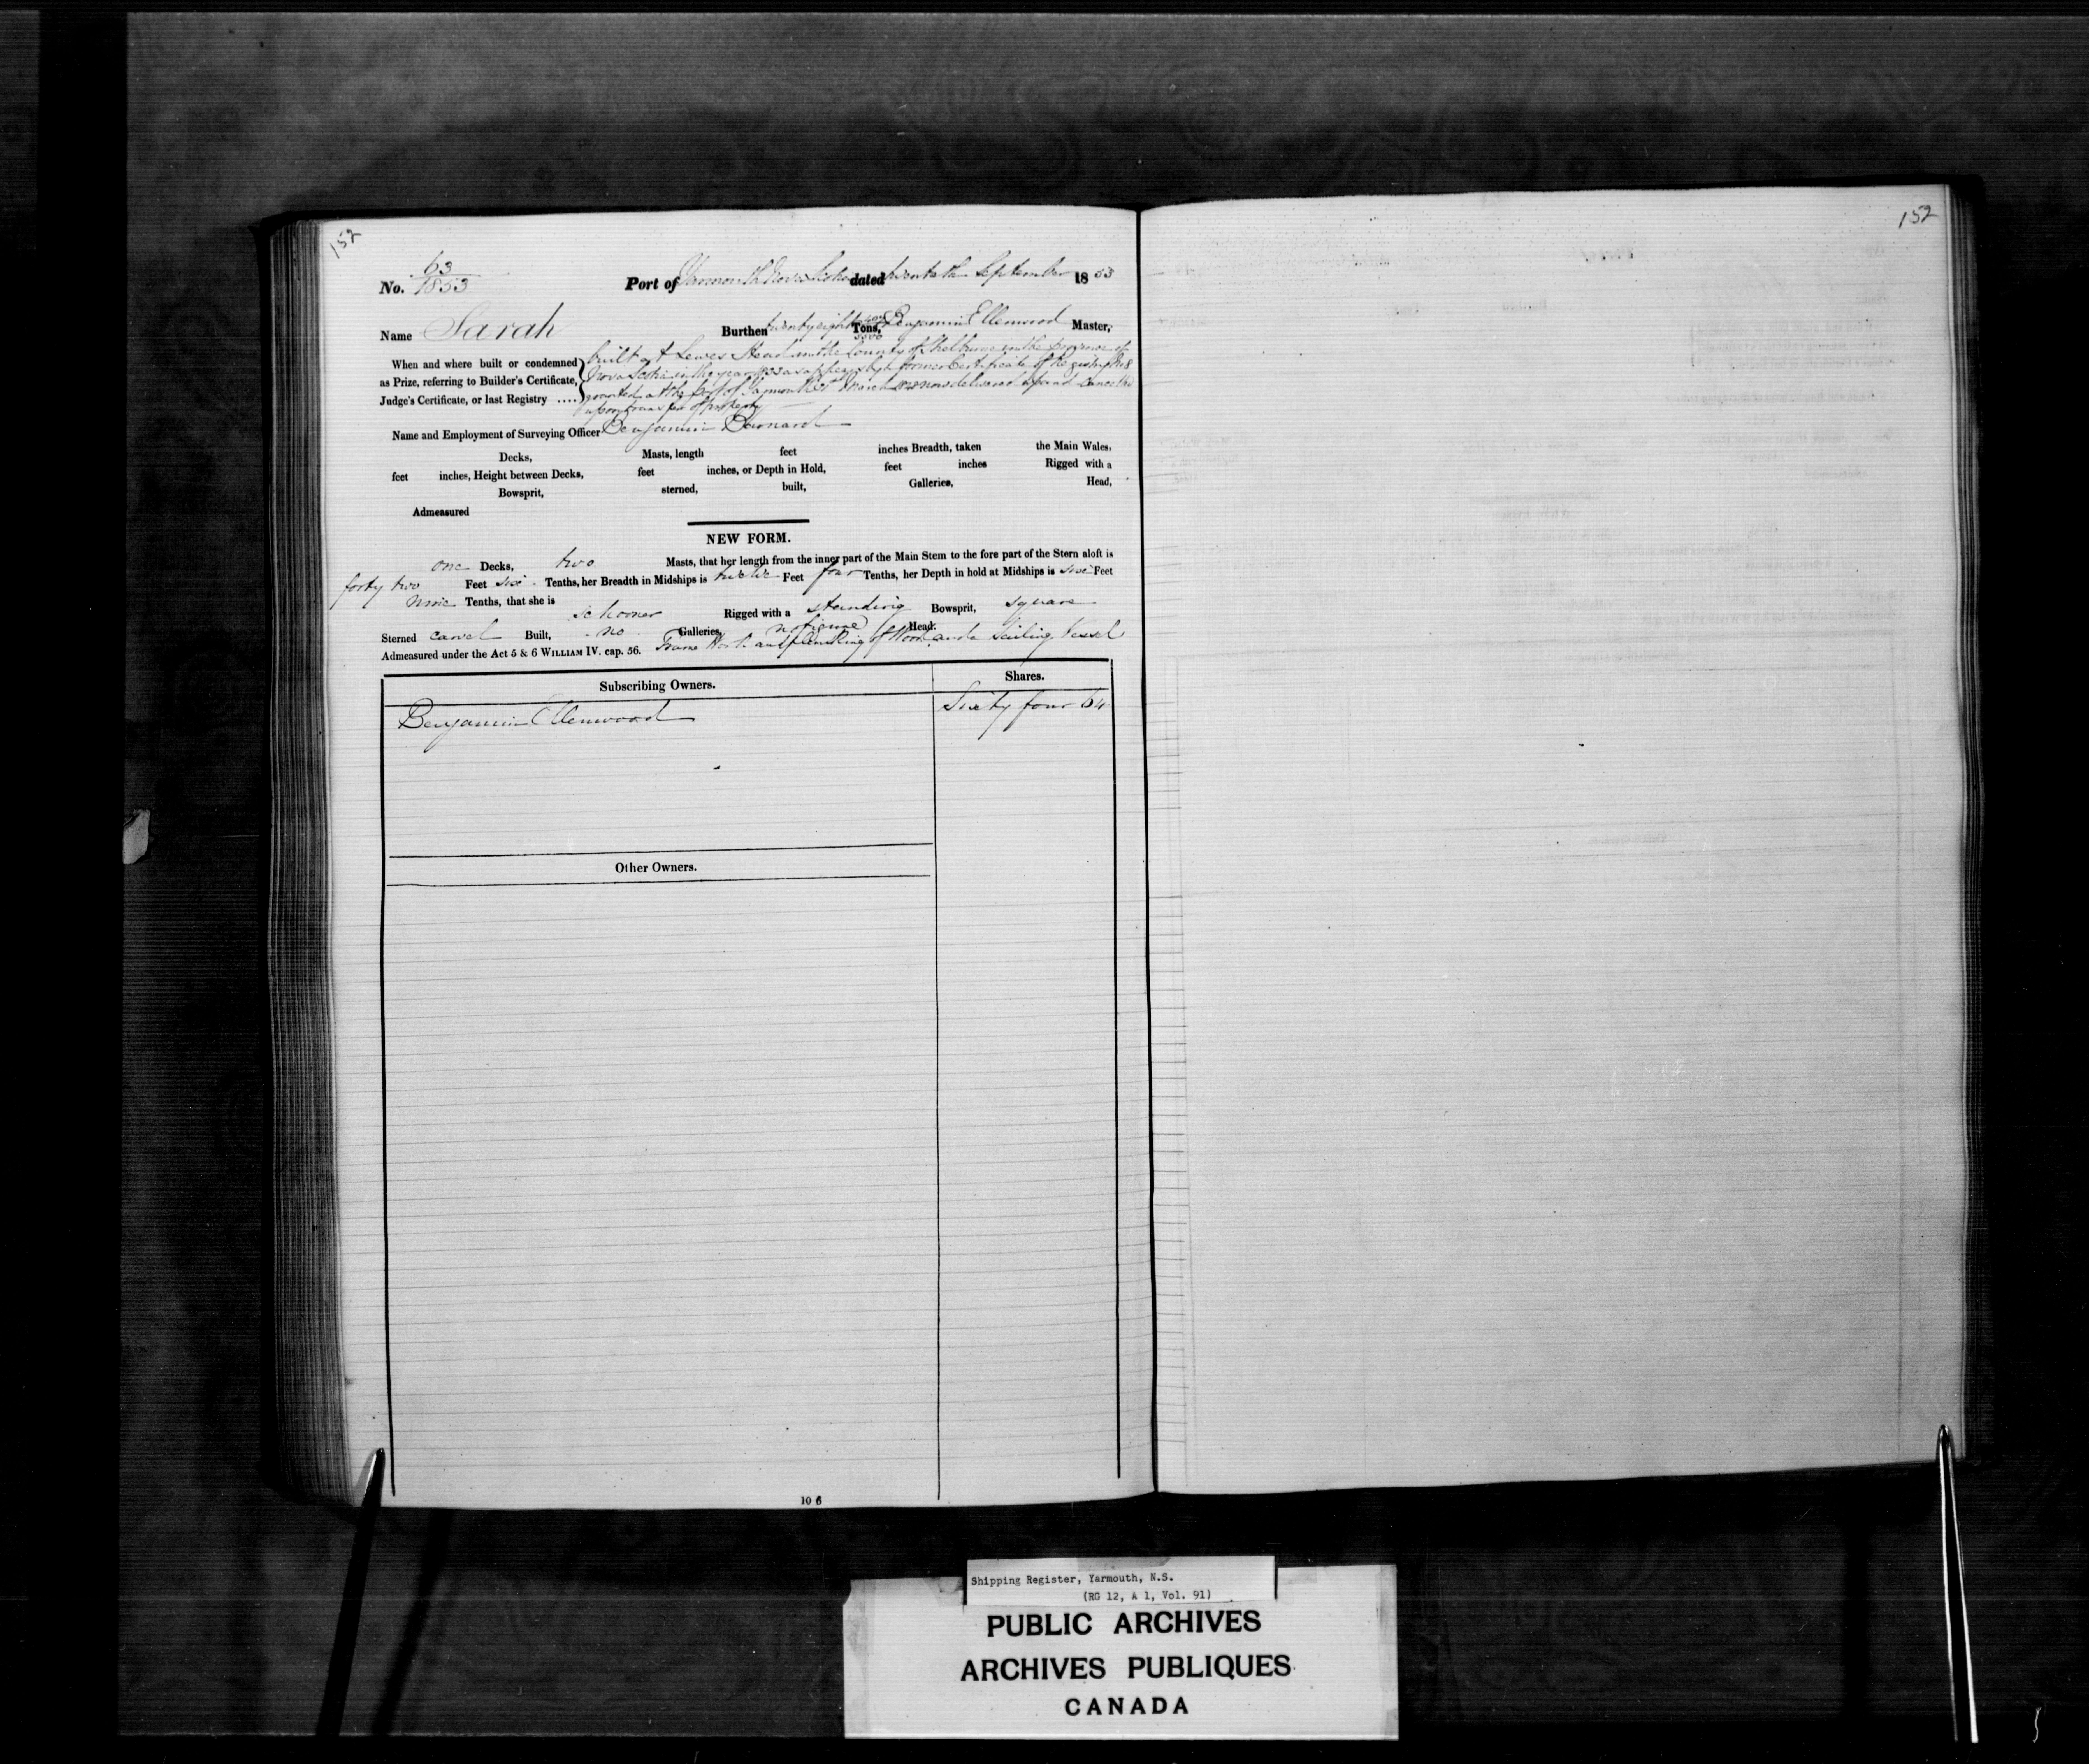 152
152
No. 63/1853 Port of Yarmouth Nova Scotia dated twentieth September 1853
Name Sarah Burthen twenty eight Tons, Benjamin Ellenwood Master,
When and where built or condemned as Prize, referring to Builder's Certificate, Judge's Certificate, or last Registry ....
built at Lewes Head in the County of Shelburne in the province of
Nova Scotia in the year 1833 as appears by former Certificate of Registry No 8
granted at the port of Yarmouth March now delivered up and Cancelled
upon transfer of property
Name and Employment of Surveying Officer Benjamin Barnard
Decks, Masts, length feet inches Breadth, taken the Main Wales,
feet inches, Height between Decks, feet inches, or Depth in Hold, feet inches Rigged with a
Bowsprit, sterned, built, Galleries, Head,
Admeasured
NEW FORM.
one Decks, two Masts, that her length from the inner part of the Main Stem to the fore part of the Stern aloft is
forty two Feet six Tenths, her Breadth in Midships is twelve Feet four Tenths, her Depth in hold at Midships is six Feet
nine Tenths, that she is schooner Rigged with a standing Bowsprit, square
Sterned carvel Built, no Galleries, no figure Head.
Admeasured under the Act 5 & 6 WILLIAM IV. cap. 56. Frame Work and planking of Wood and a Sailing Vessel
Subscribing Owners. Shares.
Benjamin Ellenwood Sixty four 64
Other Owners.
10 6
Shipping Register, Yarmouth, N.S.
(RG 12, A 1, Vol. 91)
PUBLIC ARCHIVES
ARCHIVES PUBLIQUES
CANADA